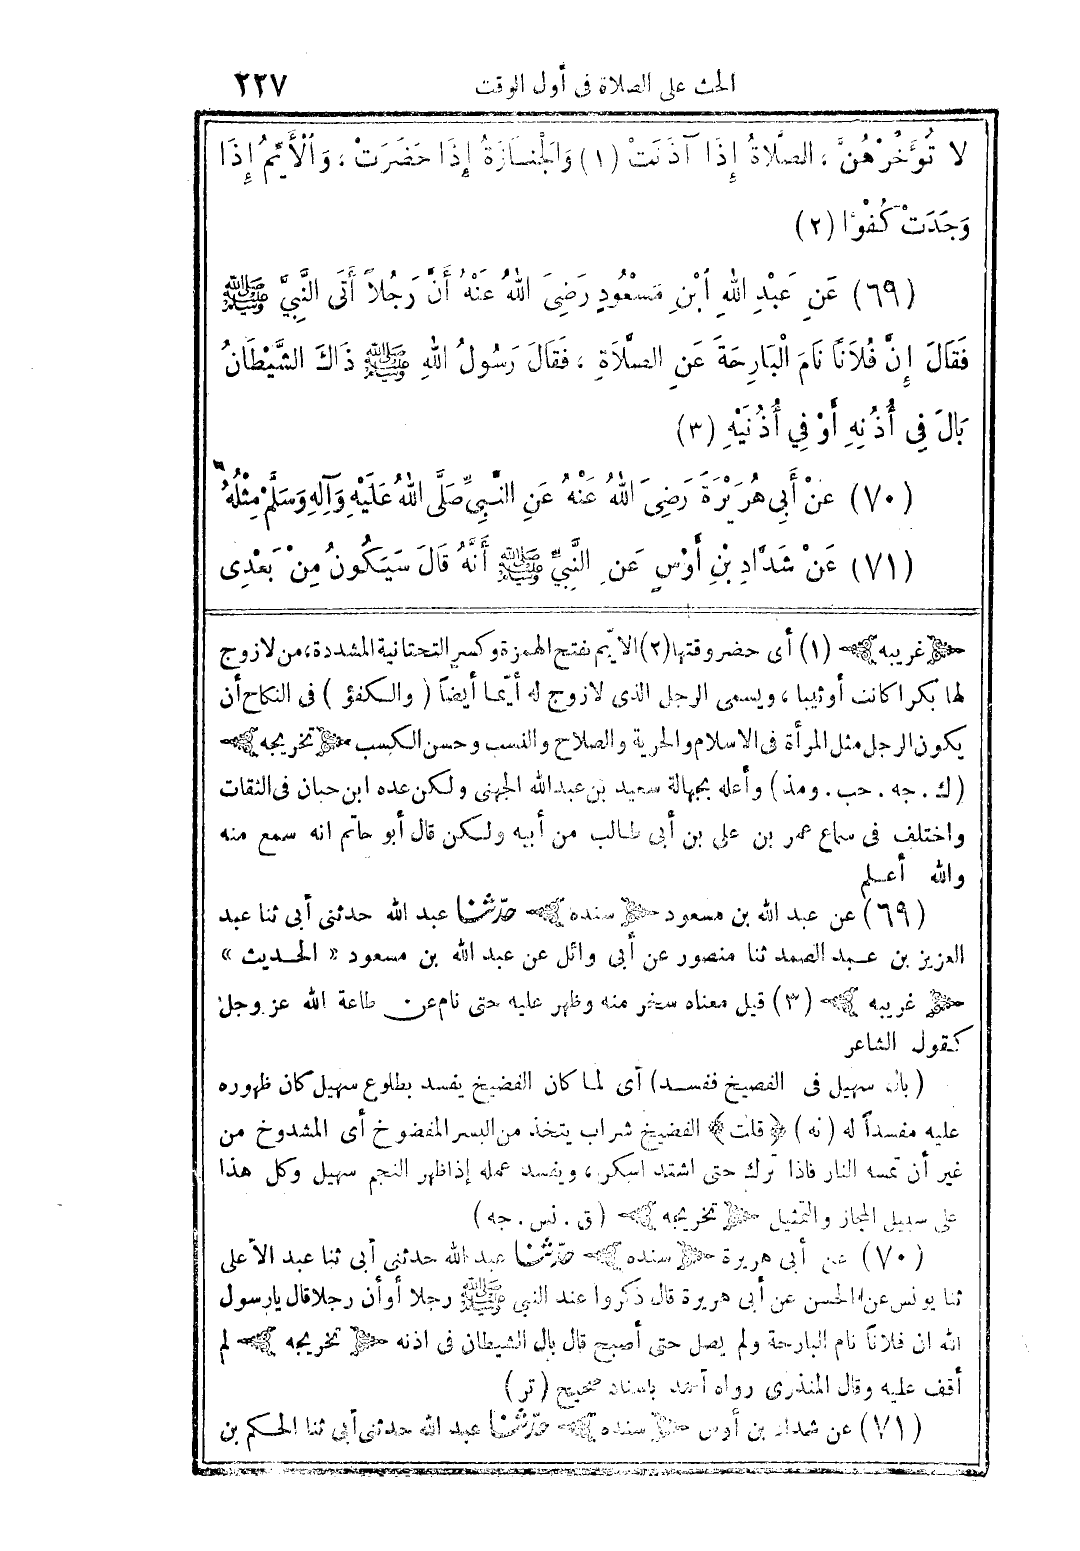 الحث على الصلاة فى أول الوقت ٢٢٧
لا تُؤَخِّرْهُنَّ ، الصَّلاَةُ إِذَا آذَنَتْ (١) وَالْجْنَازَةُ إِذَا حَضَرَتْ ، وَالْأَيِّمُ إِذَا
وَجَدَتْ كُفْوًا (٢)
(٦٩) عَنِ عَبْدِ اللهِ ابْنِ مَسْعُودٍ رَضِىَ اللهُ عَنْهُ أَنَّ رَجُلاً أَتَى النَّبِيَّ ﷺ
فَقَالَ إِنَّ فُلاَنًا نَامَ الْبَارِحَةَ عَنِ الصَّلاَةِ ، فَقَالَ رَسُولُ اللهِ ﷺ ذَاكَ الشَّيْطَانُ
بَالَ فِي أُذُنِهِ أَوْ فِي أُذُنَيْهِ (٣)
(٧٠) عَنْ أَبِي هُرَيْرَةَ رَضِيَ اللهُ عَنْهُ عَنِ النَّبِيِّ صَلَّى اللهُ عَلَيْهِ وَآلِهِ وَسَلَّمَ مِثْلُهُ
(٧١) عَنْ شَدَّادِ بْنِ أَوْسٍ عَنِ النَّبِيِّ ﷺ أَنَّهُ قَالَ سَيَكُونُ مِنْ بَعْدِى
﴿غريبه﴾ (١) أى حضر وقتها (٢) الايّم بفتح الهمزة وكسر التحتانية المشددة، من لازوج
لها بكرا كانت أو ثيبا ، ويسمى الرجل الذى لازوج له أيّما أيضاً ( والكفؤ ) فى النكاح أن
يكون الرجل مثل المرأة فى الاسلام والحرية والصلاح والنسب وحسن الكسب ﴿تخريجه﴾
(ك . جه . حب . ومذ) وأعله بجهالة سعيد بن عبد الله الجهنى ولكن عده ابن حبان فى الثقات
واختلف فى سماع عمر بن على بن أبى طالب من أبيه ولكن قال أبو حاتم انه سمع منه
والله أعلم
(٦٩) عن عبد الله بن مسعود ﴿سنده﴾ حدّثنا عبد الله حدثنى أبى ثنا عبد
العزيز بن عبد الصمد ثنا منصور عن أبى وائل عن عبد الله بن مسعود « الحديث »
﴿غريبه﴾ (٣) قيل معناه سخر منه وظهر عليه حتى نام عن طاعة الله عز وجل
كقول الشاعر
(بال سهيل فى الفضيخ ففسد) أى لما كان الفضيخ يفسد بطلوع سهيل كان ظهوره
عليه مفسداً له (نه) ﴿قلت﴾ الفضيخ شراب يتخذ من البسر المفضوخ أى المشدوخ من
غير أن تمسه النار فاذا ترك حتى اشتد اسكر ، ويفسد عمله إذا ظهر النجم سهيل وكل هذا
على سبيل المجاز والتمثيل ﴿تخريجه﴾ (ق . نس . جه)
(٧٠) عن أبى هريرة ﴿سنده﴾ حدّثنا عبد الله حدثنى أبى ثنا عبد الأعلى
ثنا يونس عن الحسن عن أبى هريرة قال ذكروا عند النبى ﷺ رجلا أو أن رجلا قال يارسول
الله ان فلاناً نام البارحة ولم يصل حتى أصبح قال بال الشيطان فى اذنه ﴿تخريجه﴾ لم
أقف عليه وقال المنذرى رواه أحمد باسناد صحيح (تر)
(٧١) عن شداد بن أوس ﴿سنده﴾ حدّثنا عبد الله حدثنى أبى ثنا الحكم بن